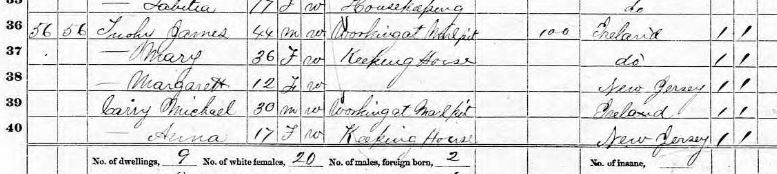 Tabitia 17 F w Housekeeping do
36 56 56 Tuohy James 44 m w Working at Marl pit 100 Ireland 1 1
37 — Mary 36 F w Keeping House do 1 1
38 — Margarett 12 F w New Jersey 1 1
39 Carry Michael 30 m w Working at Marl pit Ireland 1 1
40 — Anna 17 F w Keeping House New Jersey 1 1
No. of dwellings, 9 No. of white females, 20 No. of males, foreign born, 2 No. of insane,